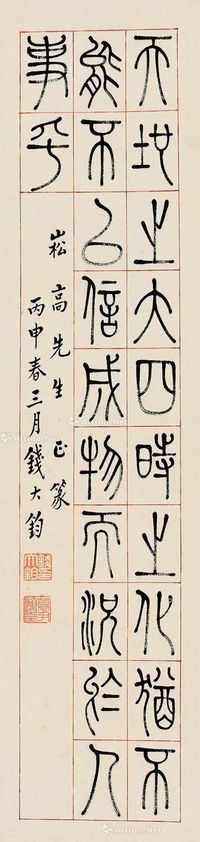 天地之大四時之化猶不
能不以信成物而況於人
事乎
崧高先生正篆
丙申春三月錢大鈞